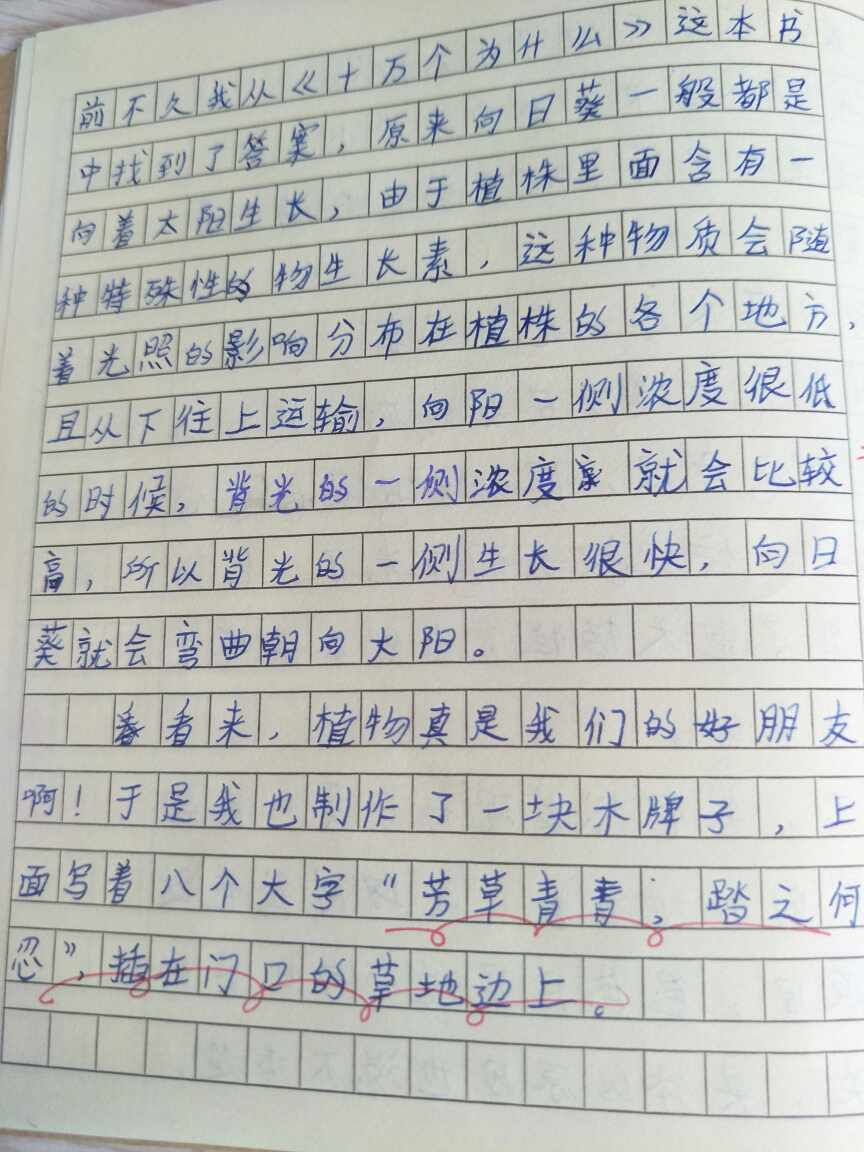 前不久我从《十万个为什么》这本书
中找到了答案，原来向日葵一般都是
向着太阳生长，由于植株里面含有一
种特殊性的物生长素，这种物质会随
着光照的影响分布在植株的各个地方，
且从下往上运输，向阳一侧浓度很低
的时候，背光的一侧浓度就会比较
高，所以背光的一侧生长很快，向日
葵就会弯曲朝向大阳。
看来，植物真是我们的好朋友
啊！于是我也制作了一块木牌子，上
面写着八个大字“芳草青青，踏之何
忍”，插在门口的草地边上。